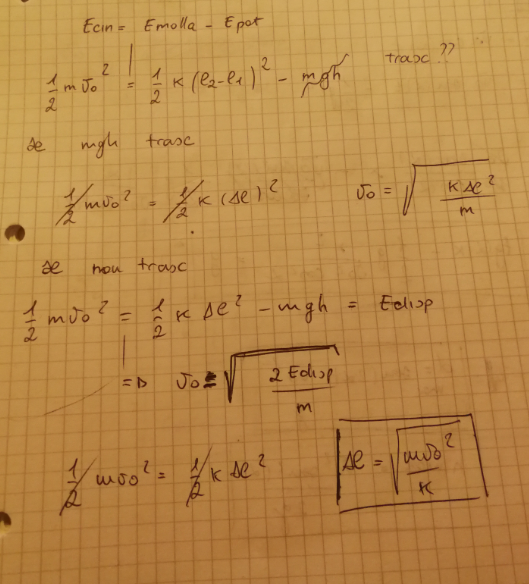 Ecin = Emolla - Epot
1/2 m v0² = 1/2 K (l2-l1)² - mgh trasc ??
se mgh trasc
1/2 m v0² = 1/2 K (Δl)² v0 = √(K Δl² / m)
se non trasc
1/2 m v0² = 1/2 K Δl² - mgh = Edisp
=D v0 = √(2 Edisp / m)
1/2 m v0² = 1/2 K Δl² Δl = √(m v0² / K)